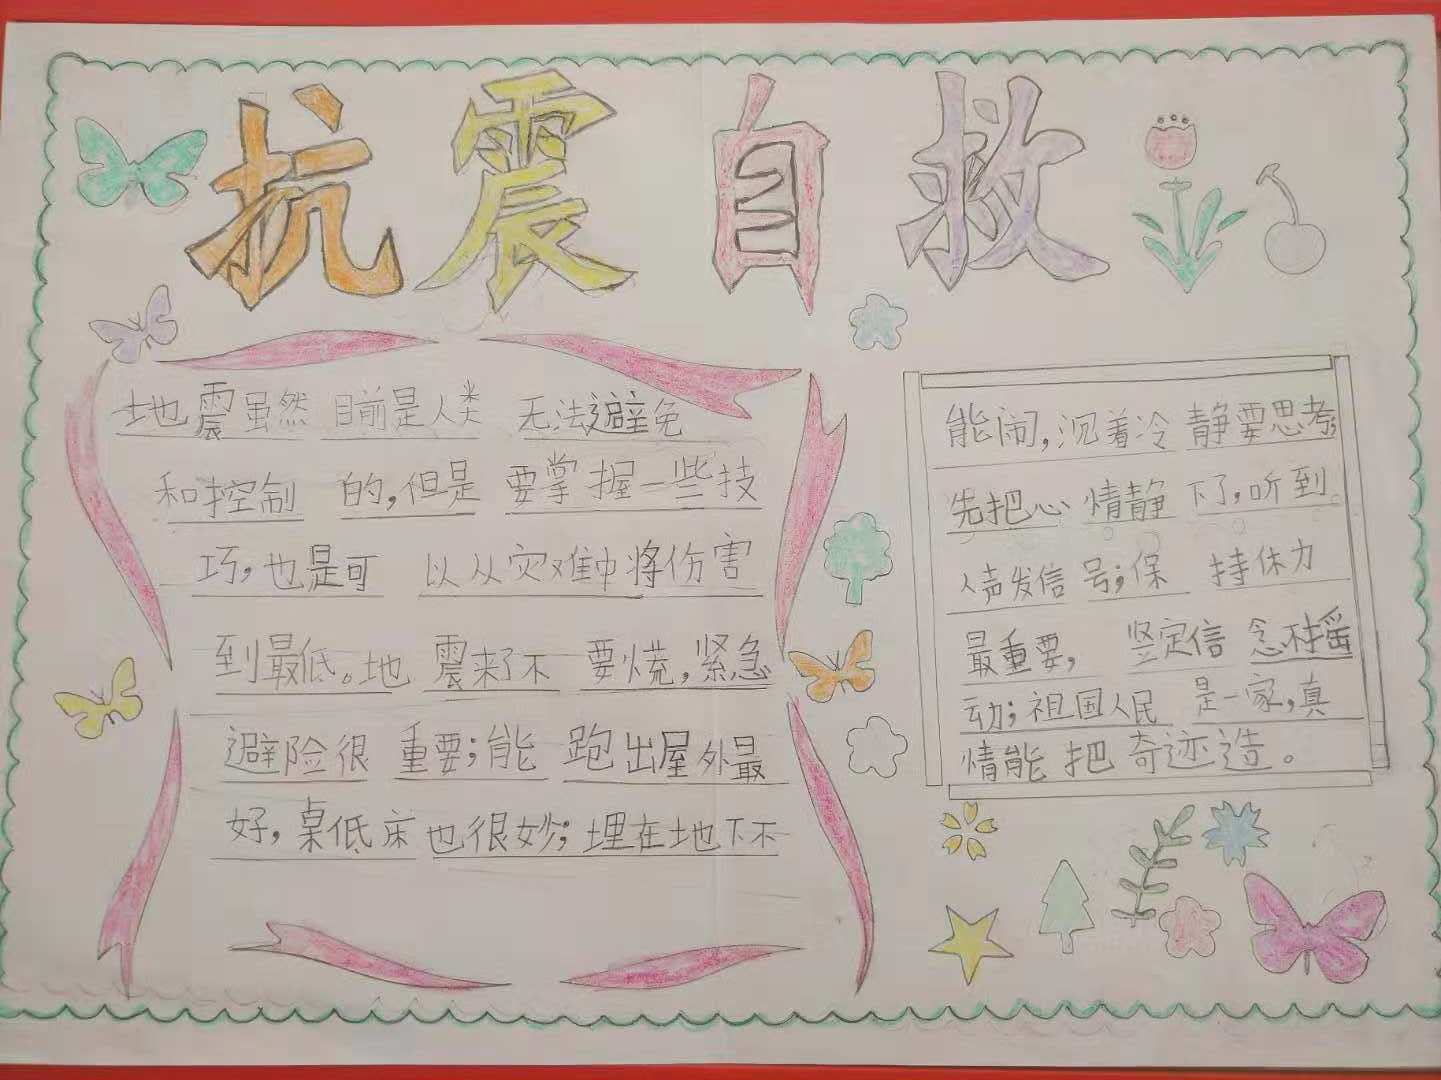 抗震自救
地震虽然目前是人类无法避免
和控制的,但是要掌握一些技
巧,也是可以从灾难中将伤害
到最低。地震来了不要慌,紧急
避险很重要;能跑出屋外最
好,桌低床也很妙;埋在地下不
能闹,沉着冷静要思考;
先把心情静下了,听到
人声发信号;保持体力
最重要,坚定信念不摇
动;祖国人民是一家,真
情能把奇迹造。